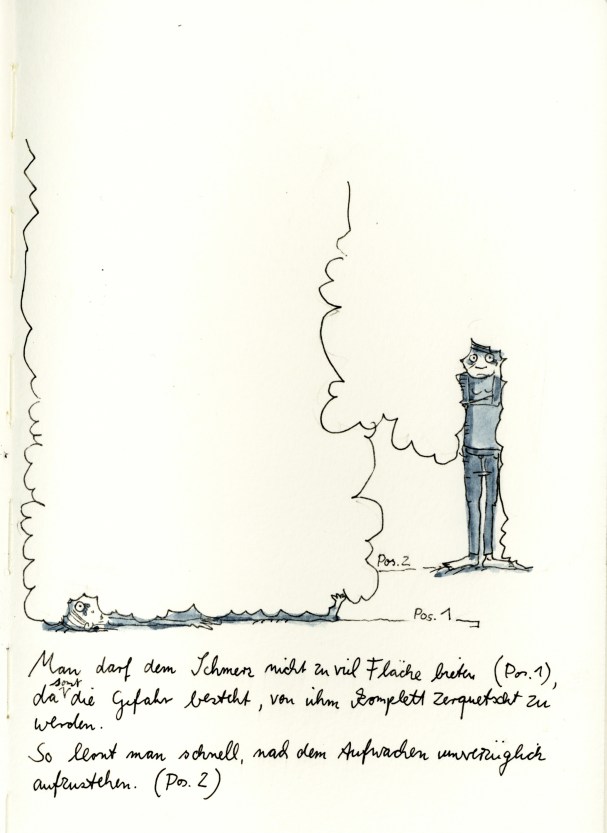 Pos. 2
Pos. 1
Man darf dem Schmerz nicht zu viel Fläche bieten (Pos. 1),
da sonst die Gefahr besteht, von ihm komplett zerquetscht zu
werden.
So lernt man schnell, nach dem Aufwachen unverzüglich
aufzustehen. (Pos. 2)